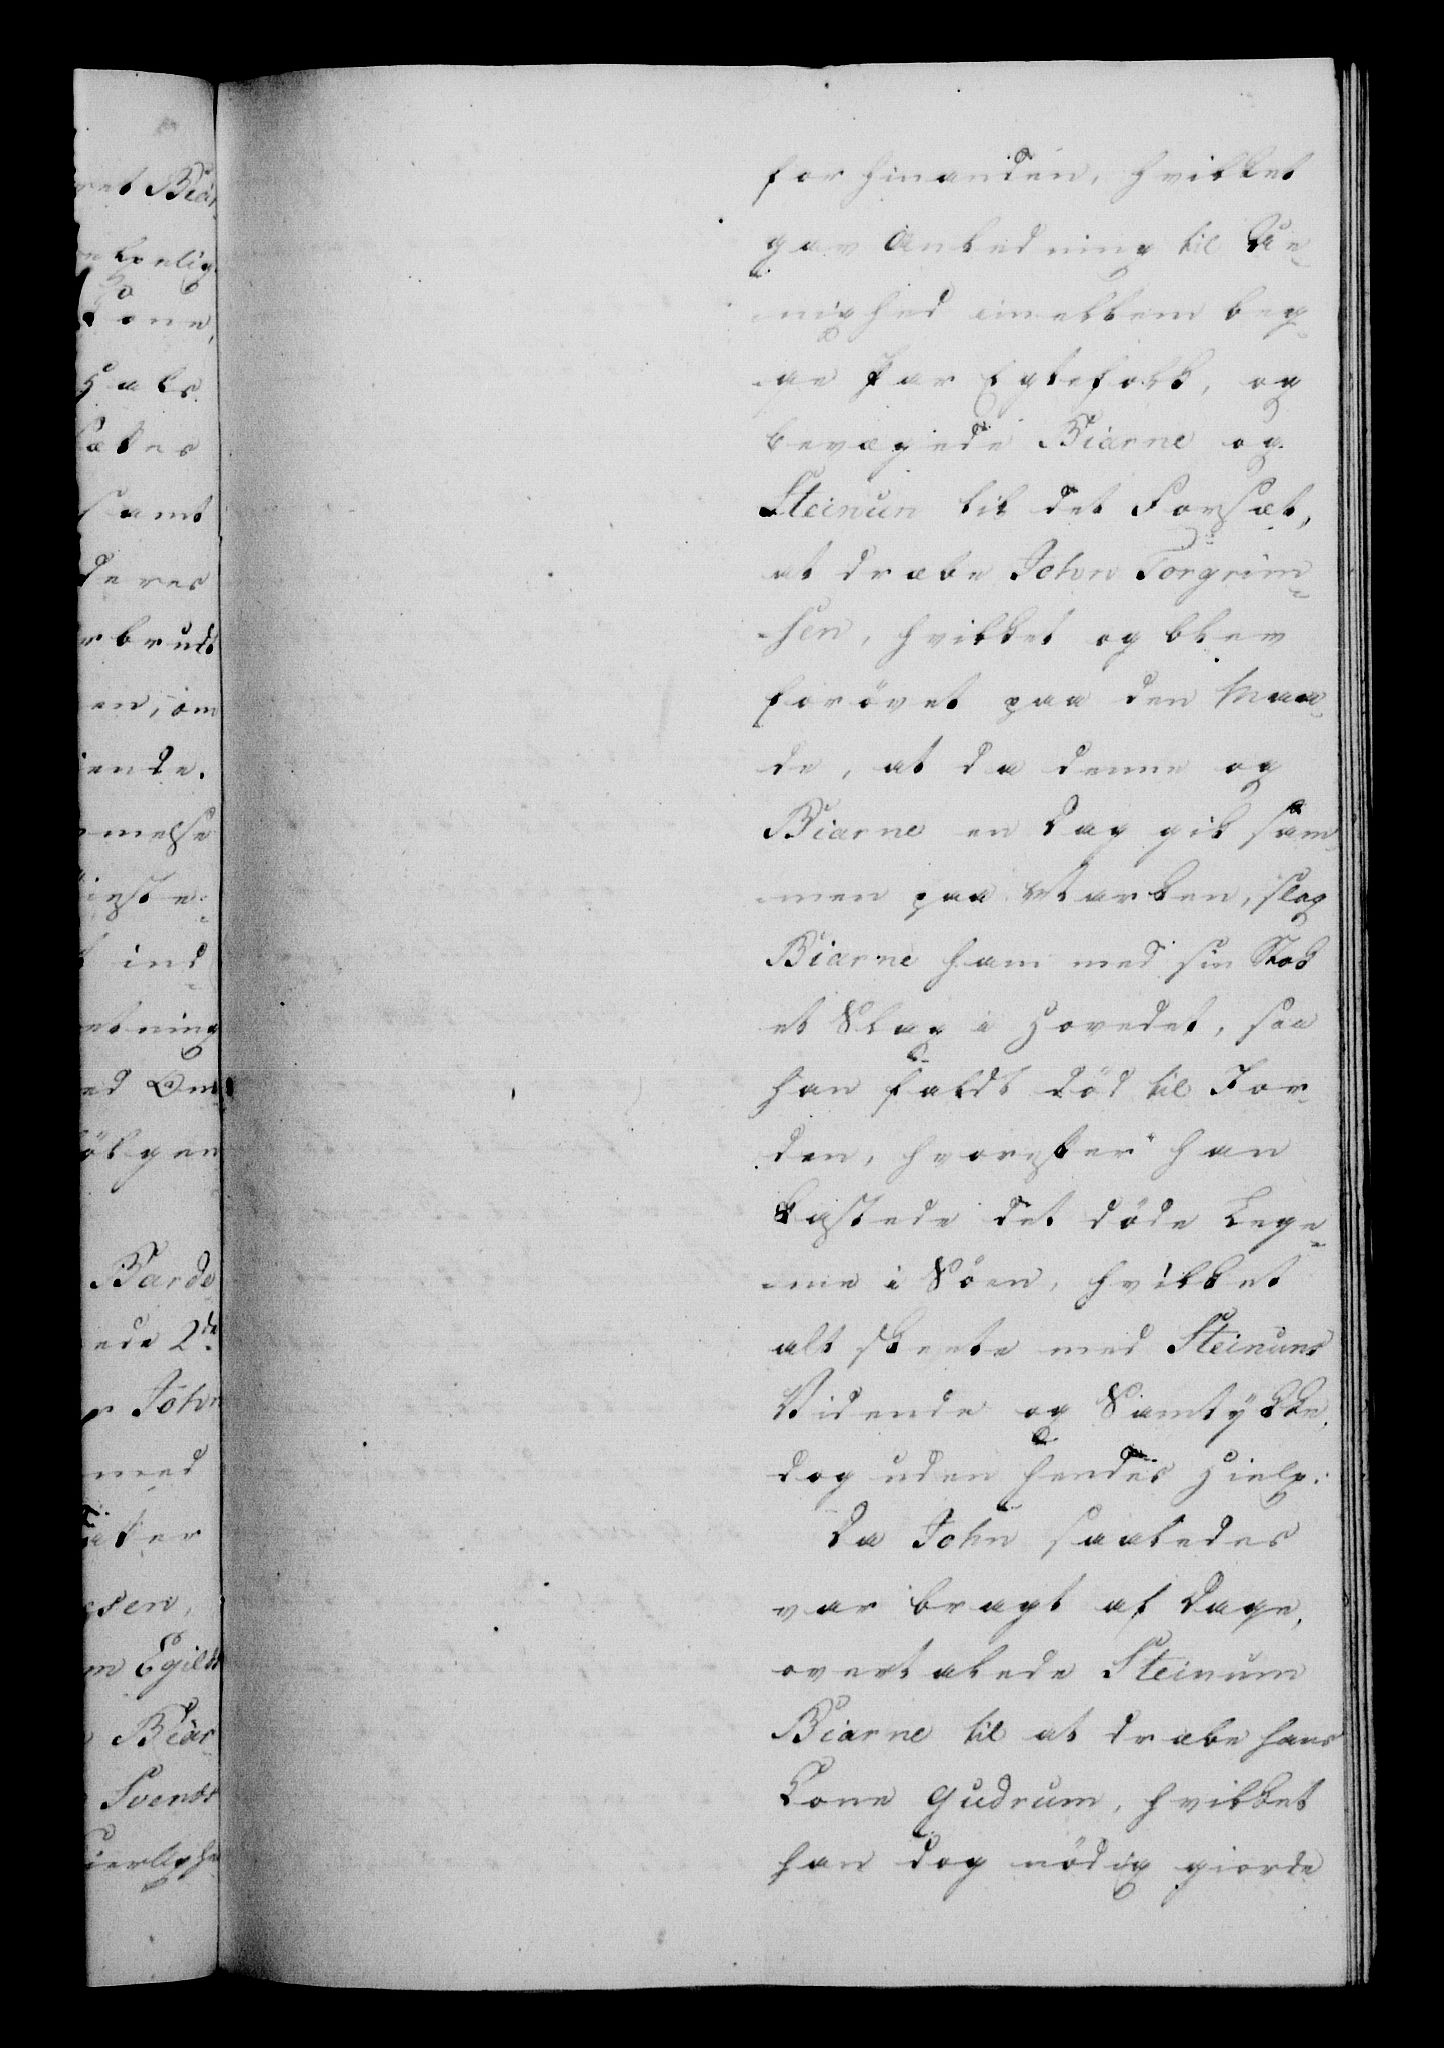 for hinanden, hvilket
gav Anledning til Ue-
nighed imellem beg-
ge Par Egtefolk, og
bevægede Biarne og
Steinun til det Forsæt,
at dræbe John Torgrim-
sen, hvilket og blev
forövet paa den Maa-
de, at da denne og
Biarne en Dag gik sam-
men paa Marken, slog
Biarne ham med sin Stok
et Slag i Hovedet, saa
han faldt död til Jor-
den, hvorefter han
kastede det döde Lege-
me i Söen, hvilket
alt skeete med Steinuns
Vidende og Samtykke,
dog uden hendes Hielp.
Da John saaledes
var bragt af Dage,
overtalede Steinum
Biarne til at dræbe hans
Kone Gudrum, hvilket
han dog nödig giorde